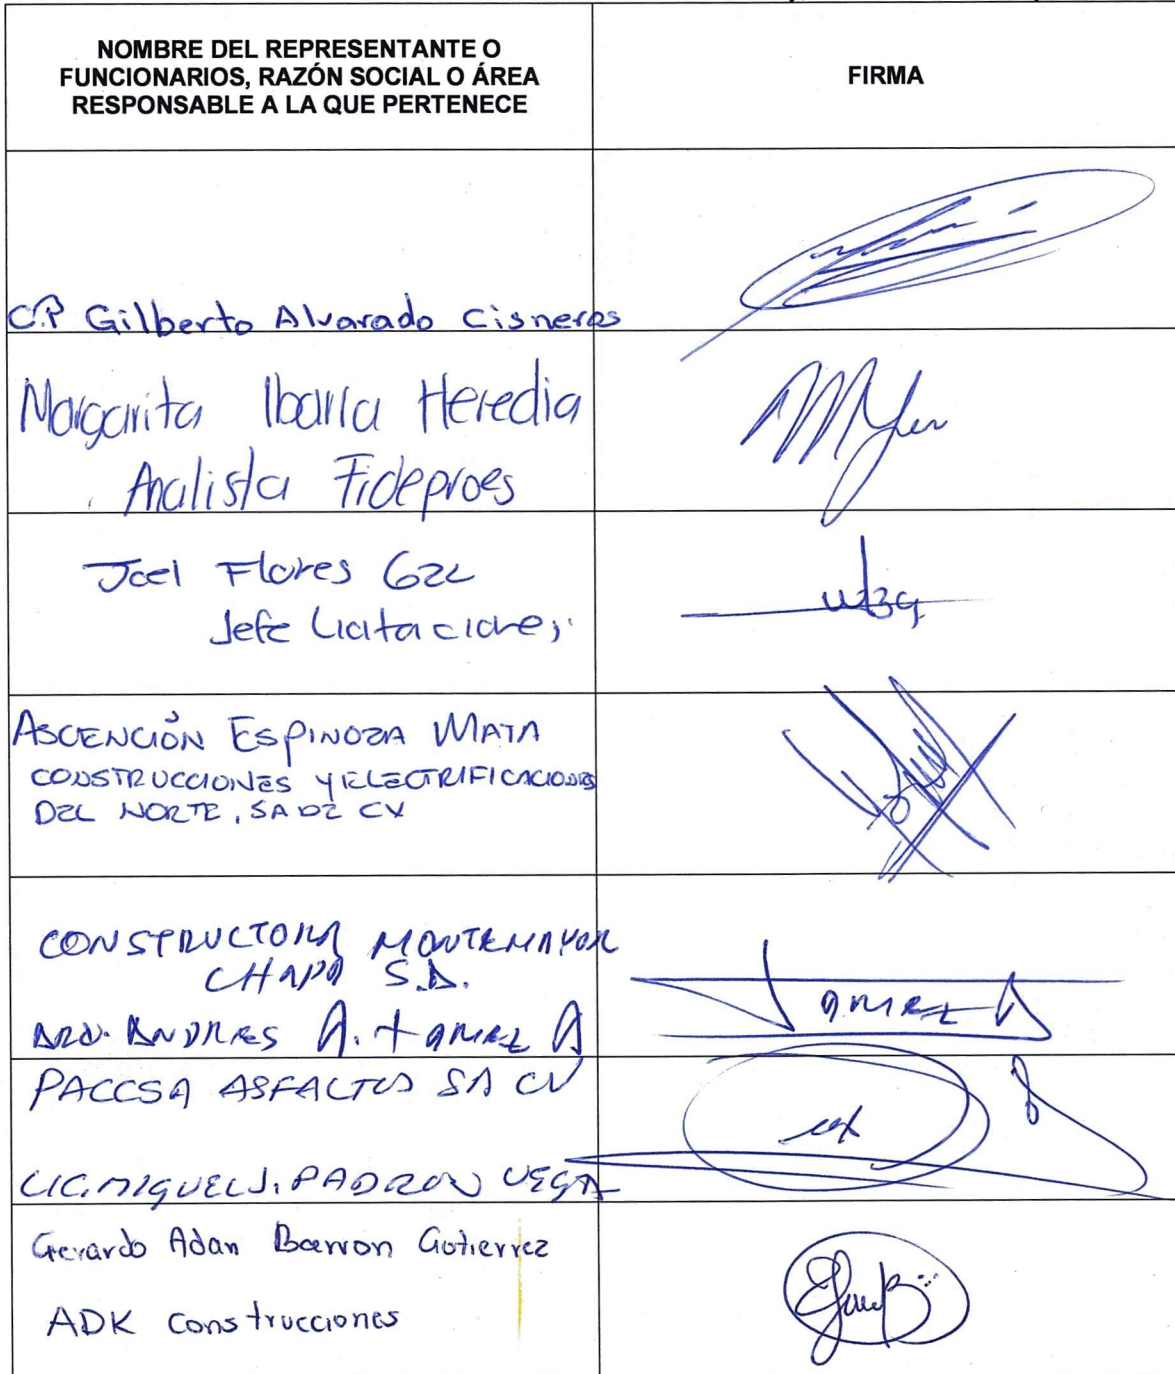 NOMBRE DEL REPRESENTANTE O
FUNCIONARIOS, RAZÓN SOCIAL O ÁREA
RESPONSABLE A LA QUE PERTENECE
FIRMA
C.P Gilberto Alvarado Cisneros
Margarita Ibarra Heredia
Analista Fideproes
Joel Flores Gzz
Jefe Licitaciones
ASCENCIÓN ESPINOZA MATA
CONSTRUCCIONES Y ELECTRIFICACIONES
DEL NORTE, SA DE CV
CONSTRUCTORA MONTEMAYOR
CHAPA S.A.
ARQ. ANDRES A. tamez A
tamez A
PACCSA ASFALTOS SA CV
LIC. MIGUEL J. PADRON VEGA
Gerardo Adan Barron Gutierrez
ADK Construcciones